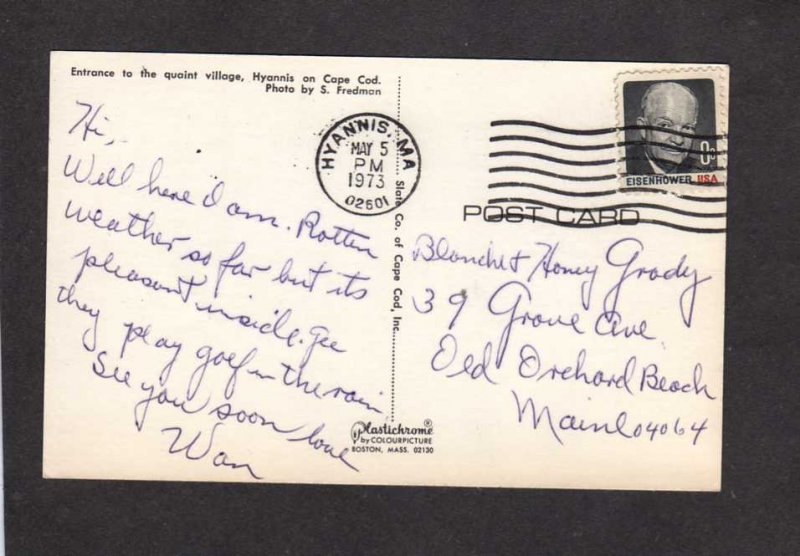 Entrance to the quaint village, Hyannis on Cape Cod.
Photo by S. Fredman
Hi,
Well here I am. Rotten
weather so far but its
pleasant inside. Gee
they play golf in the rain
See you soon love
Wan
HYANNIS, MA
MAY 5
PM
1973
02601
State Co. of Cape Cod, Inc.
EISENHOWER USA
POST CARD
Blanche & Honey Grady
39 Grove Ave
Old Orchard Beach
Maine 04064
Plastichrome®
by COLOURPICTURE
BOSTON, MASS. 02130